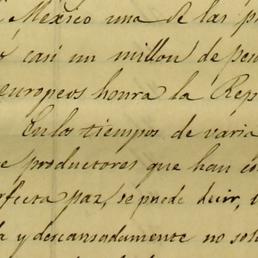 México una de las p
casi un millon de pes
europeos honra la Rep
En los tiempos de varia
e productores que han co
rfecta paz, se puede decir,
a y descansadamente no sol